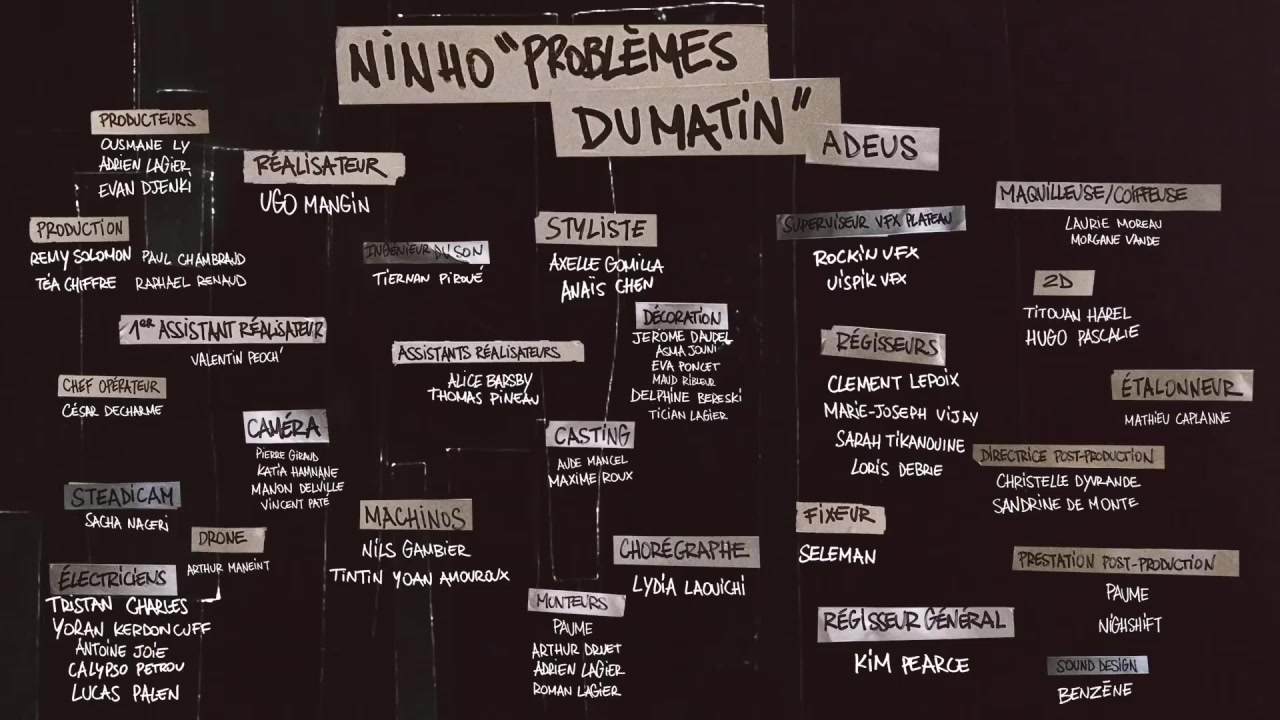 NINHO "PROBLÈMES
DU MATIN"
ADEUS
PRODUCTEURS
OUSMANE LY
ADRIEN LAGIER
EVAN DJENKI
RÉALISATEUR
UGO MANGIN
PRODUCTION
REMY SOLOMON PAUL CHAMBRAUD
TEA CHIFFRE RAPHAEL RENAUD
INGÉNIEUR DU SON
TIERNAN PIROUÉ
STYLISTE
AXELLE GOMILLA
ANAÏS CHEN
SUPERVISEUR VFX PLATEAU
ROCKIN VFX
VISPIK VFX
MAQUILLEUSE/COIFFEUSE
LAURIE MOREAU
MORGANE VANDE
2D
TITOUAN HAREL
HUGO PASCALIE
1ER ASSISTANT RÉALISATEUR
VALENTIN PEOCH'
ASSISTANTS RÉALISATEURS
ALICE BARSBY
THOMAS PINEAU
DÉCORATION
JEROME DAUDEL
ASMA JOUNI
EVA PONCET
MAUD RIBLEUR
DELPHINE BERESKI
TICIAN LAGIER
RÉGISSEURS
CLEMENT LEPOIX
MARIE-JOSEPH VIJAY
SARAH TIKANOUINE
LORIS DEBRIE
ÉTALONNEUR
MATHIEU CAPLANNE
CHEF OPÉRATEUR
CÉSAR DECHARME
CAMÉRA
PIERRE GIRAUD
KATIA HAMNANE
MANON DELVILLE
VINCENT PATE
CASTING
AUDE MANCEL
MAXIME ROUX
DIRECTRICE POST-PRODUCTION
CHRISTELLE DYVRANDE
SANDRINE DE MONTE
STEADICAM
SACHA NACERI
DRONE
ARTHUR MANEINT
MACHINOS
NILS GAMBIER
TINTIN YOAN AMOUROUX
FIXEUR
SELEMAN
CHORÉGRAPHE
LYDIA LAOUICHI
PRESTATION POST-PRODUCTION
PAUME
NIGHSHIFT
ÉLECTRICIENS
TRISTAN CHARLES
YORAN KERDONCUFF
ANTOINE JOIE
CALYPSO PETROU
LUCAS PALEN
MONTEURS
PAUME
ARTHUR DRUET
ADRIEN LAGIER
ROMAN LAGIER
RÉGISSEUR GÉNÉRAL
KIM PEARCE
SOUND DESIGN
BENZĒNE